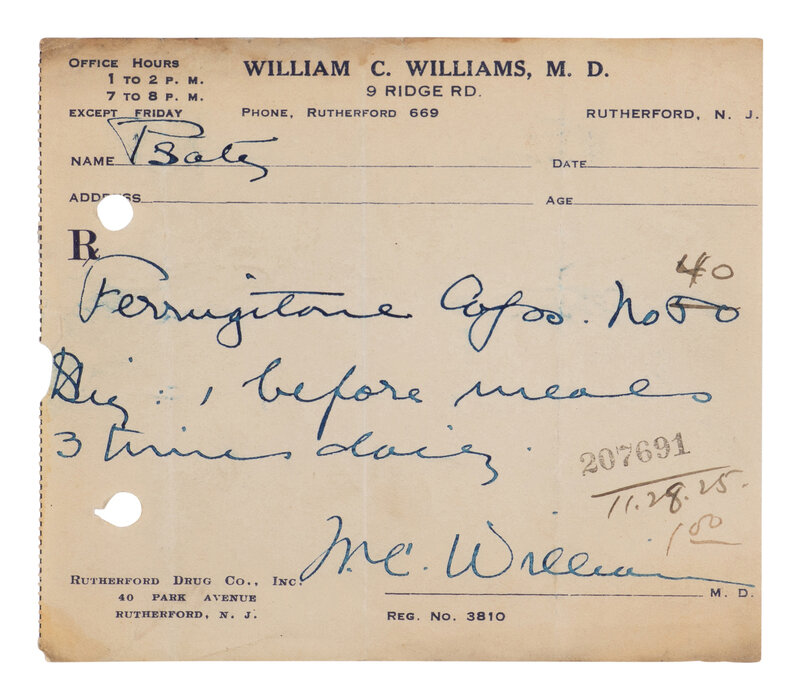 OFFICE HOURS
1 TO 2 P. M.
7 TO 8 P. M.
EXCEPT FRIDAY
WILLIAM C. WILLIAMS, M. D.
9 RIDGE RD.
PHONE, RUTHERFORD 669
RUTHERFORD, N. J.
NAME
DATE
ADDRESS
AGE
℞
40
Ferrugitone Caps. No 50
Sig: 1 before meals
3 times daily.
207691
11.28.25.
1 00
W.C. Williams
M. D.
RUTHERFORD DRUG CO., INC.
40 PARK AVENUE
RUTHERFORD, N. J.
REG. NO. 3810